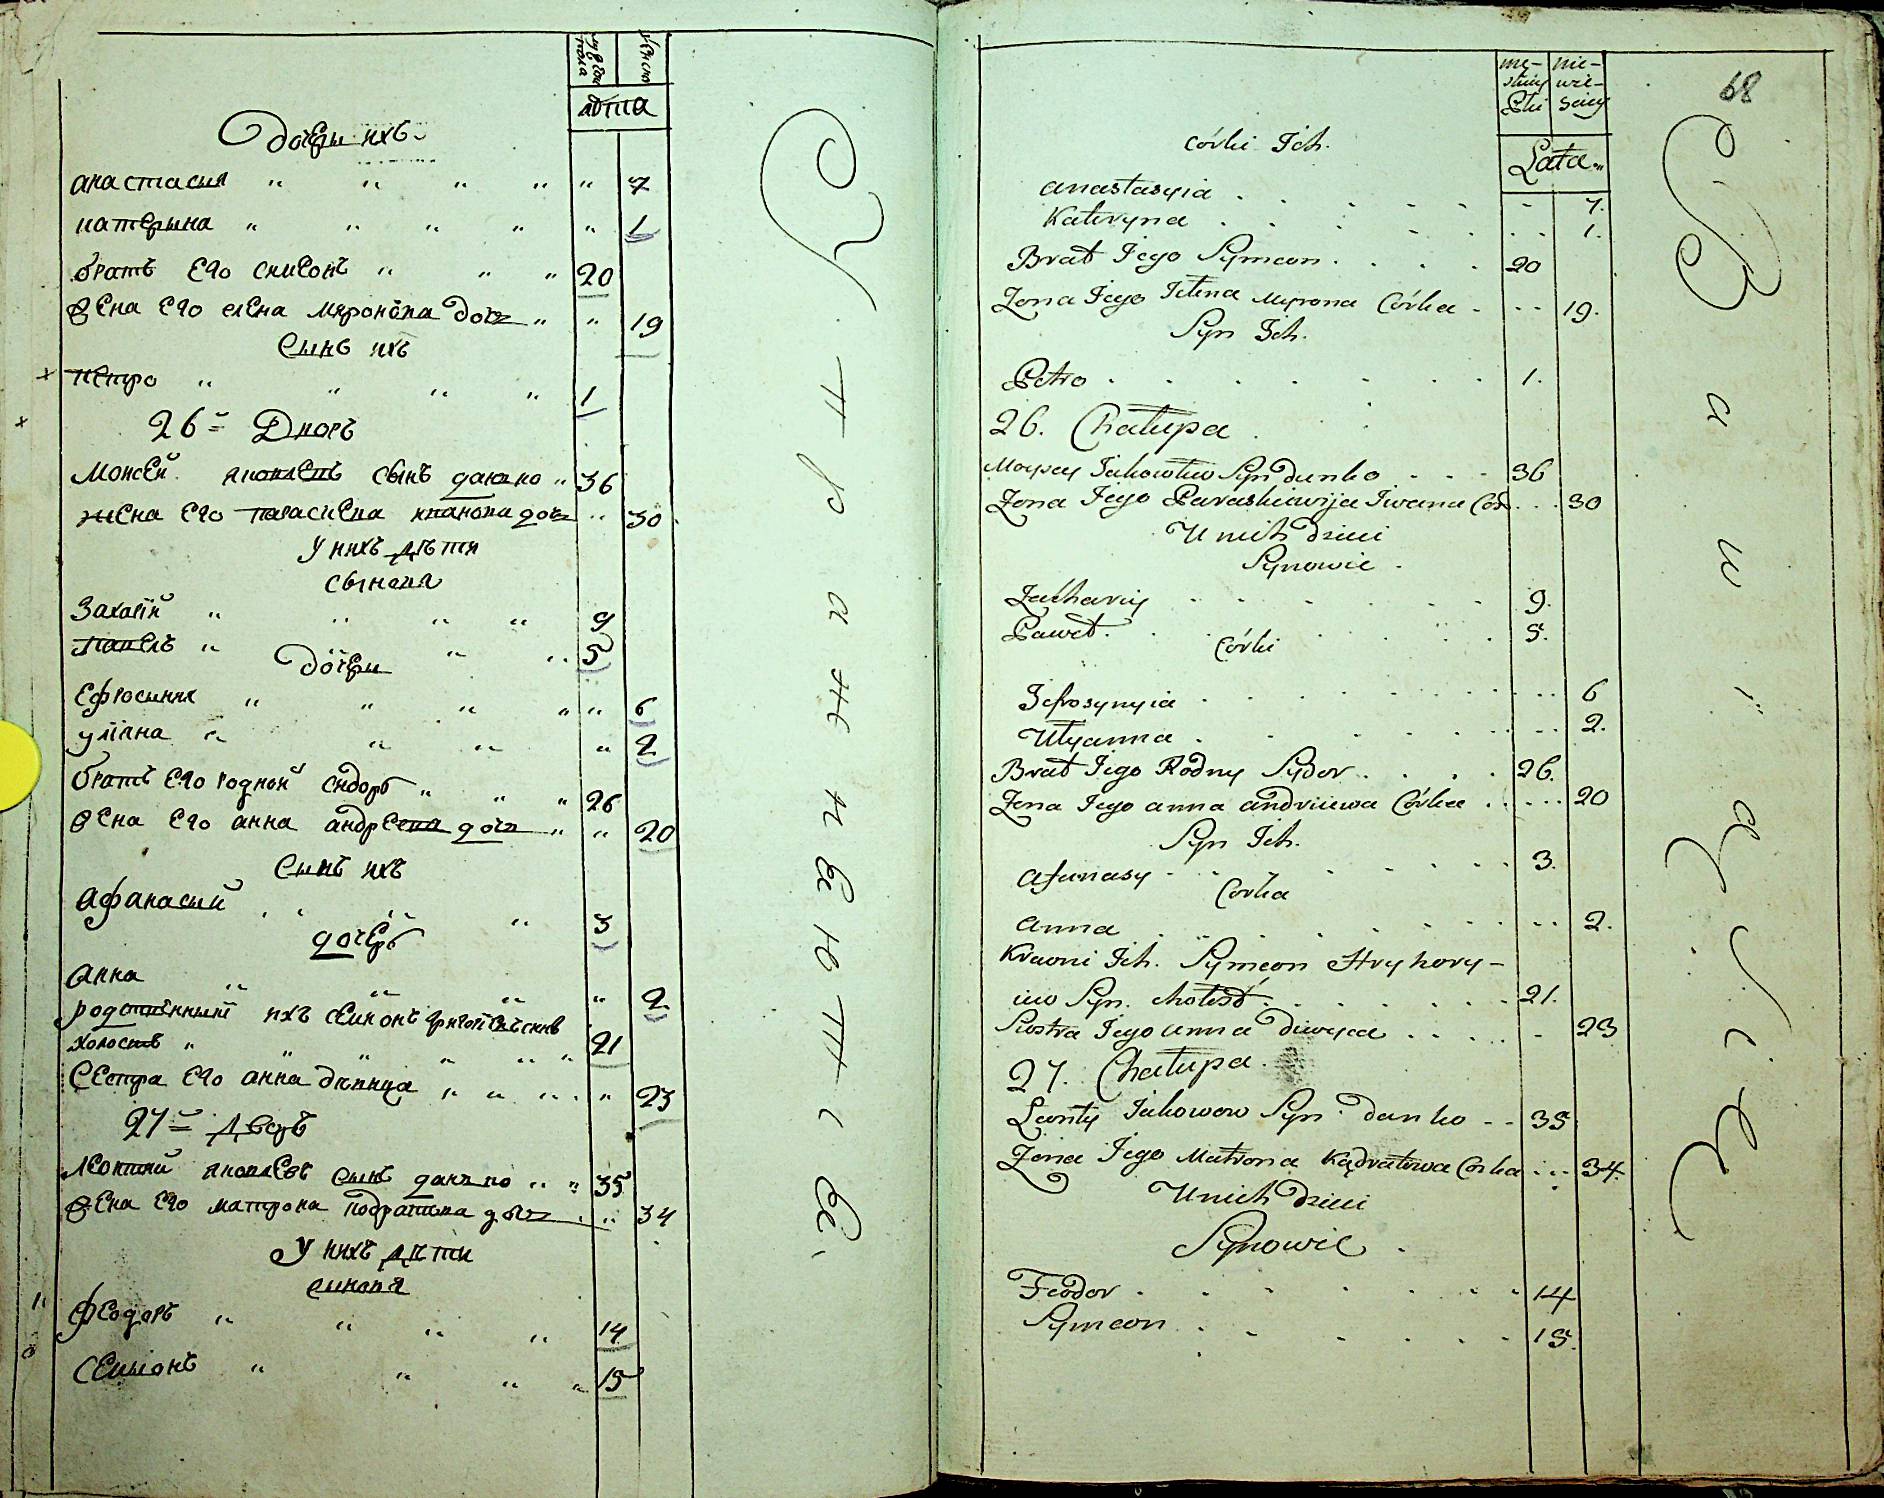 мужеска пола
женско
лѣта
Дочери ихъ
анастасия " " " " " 7
катерына " " " " " 1
братъ его симеонъ " " " 20
жена его елена миронова дочь " " 19
Сынъ ихъ
петро " " " " 1
26й Дворъ
Моисей яковлевъ сынъ данько " 36
жена его параскева иванова дочь " 30
У нихъ дѣти
сынавя
Захарій " " " " 9
Павелъ " " " 5
дочери
Ефросиния " " " " " 6
уліяна " " " " 2
братъ его родной сидоръ " " " 26
жена его анна андреева дочь " " 20
Сынъ ихъ
афанасий " " " 3
дочеръ
анна " " " " 2
родственный ихъ семионъ григориевъ синъ
холостъ " " " " " " 21
Сестра его анна дивица " " " " 23
27й Дворъ
Леонтий яковлевъ сынъ данько " " 35
жена его матрона кодратова дочь " 34
У нихъ дѣти
сынавя
феодоръ " " " " 14
Семионъ " " " " 15
У п р а ж н е н і е.
mę-
skiey
Płci
nie-
wie-
sciey
Lata
68
córki Ich.
anastasyia . . . . . - 7.
Kateryna . . . . . . 1.
Brat Jego Symeon . . . . 20
Zona Jego Jelena Myrona Córka . - - 19.
Syn Ich.
Petro . . . . . . . 1.
26. Chałupa
Moysey Jakowlew Syn danko . . . 36
Zona Jego Paraskiewija Iwana Cór . . . 30
U nich dzieci
Synowie .
Zachariy . . . . . . 9.
Paweł . . . . . . 5.
Córki
Jefrosynyia . . . . . . . 6
Ulyanna . . . . . . . 2.
Brat Jego Rodny Sydor . . . . 26.
Zona Jego anna andriiewa Córka . . . . . 20
Syn Ich.
Afanasy . . . . . . 3.
Córka
anna . . . . . . . 2.
Krewni Ich. Symeon Hryhory-
iew Syn. chołost . . . . . . . 21.
Siostra Jego anna diwyca . . . . . - 23
27. Chałupa.
Leonty Jakowow Syn danko - - 35
Zona Jego Matrona Kądratowa Corka . . . 34.
U nich dzieci
Synowie .
Feodor . . . . . . . . 14
Symeon . . . . . . 15.